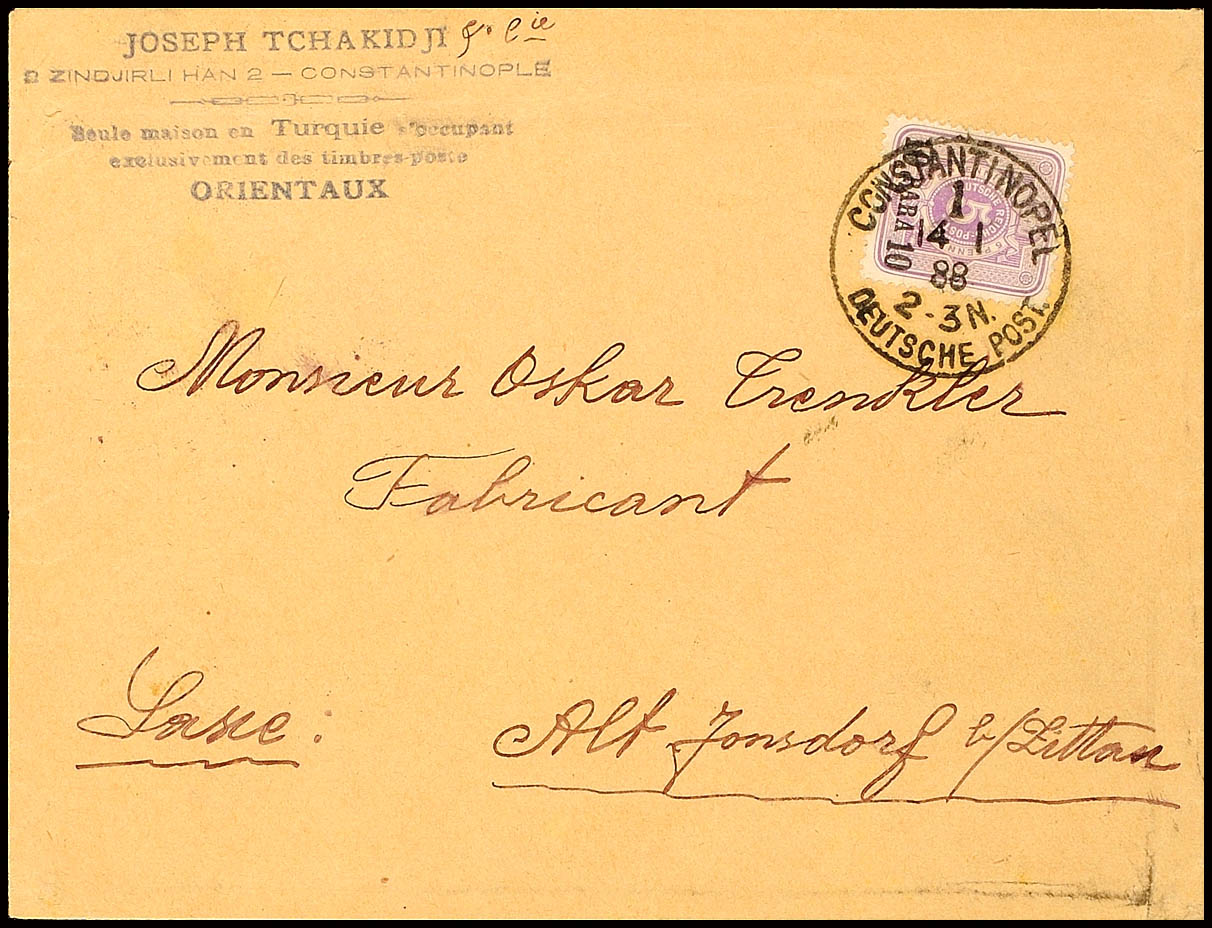 JOSEPH TCHAKIDJI & Cie
2 ZINDJIRLI HAN 2 — CONSTANTINOPLE
Seule maison en Turquie s'occupant
exclusivement des timbres-poste
ORIENTAUX
CONSTANTINOPEL
1
14 1
88
2-3N.
DEUTSCHE POST.
10 PARA 10
DEUTSCHE REICHS-POST
5
5 PFENNIG
Monsieur Oskar Trenkler
Fabricant
Saxe:
Alt Jonsdorf b/Zittau